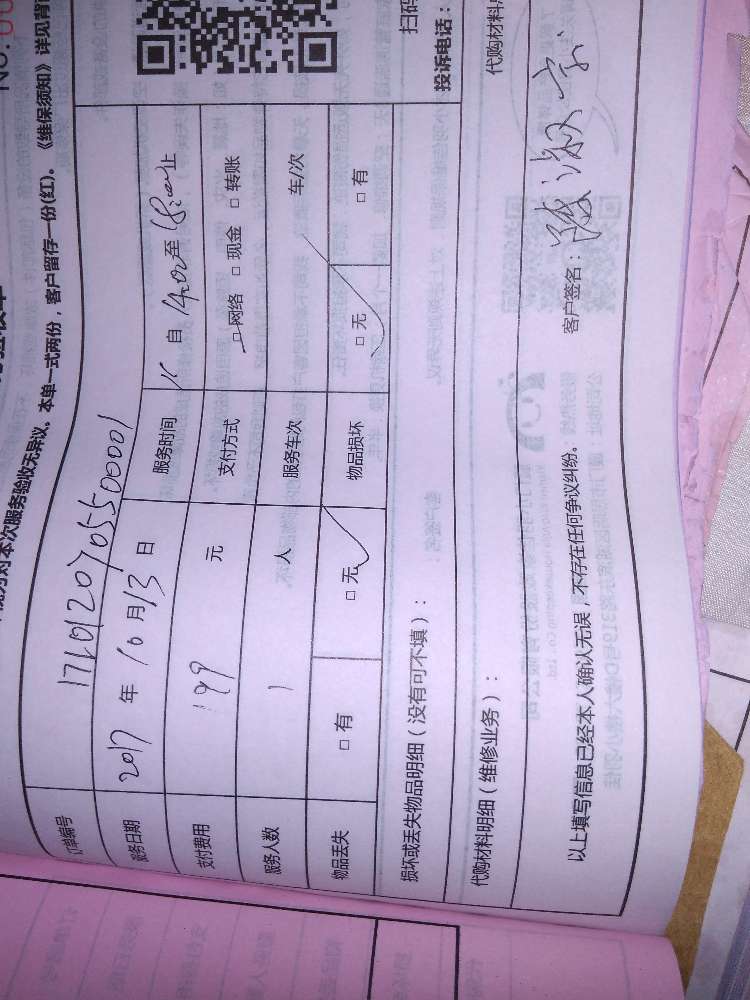 NO.
对本次服务验收无异议。本单一式两份，客户留存一份(红)。《维保须知》详见背
订单编号 1710120705500001
服务日期 2017 年 10 月 13 日 服务时间 自 14:00 至 18:00 止
支付费用 199 元 支付方式 □ 网络 □ 现金 □ 转账
服务人数 1 人 服务车次 车/次
物品丢失 □ 有 □ 无 物品损坏 □ 无 □ 有
扫码
投诉电话：
损坏或丢失物品明细（没有可不填）：
代购材料明细（维修业务）： 代购材料
以上填写信息已经本人确认无误，不存在任何争议纠纷。 客户签名：